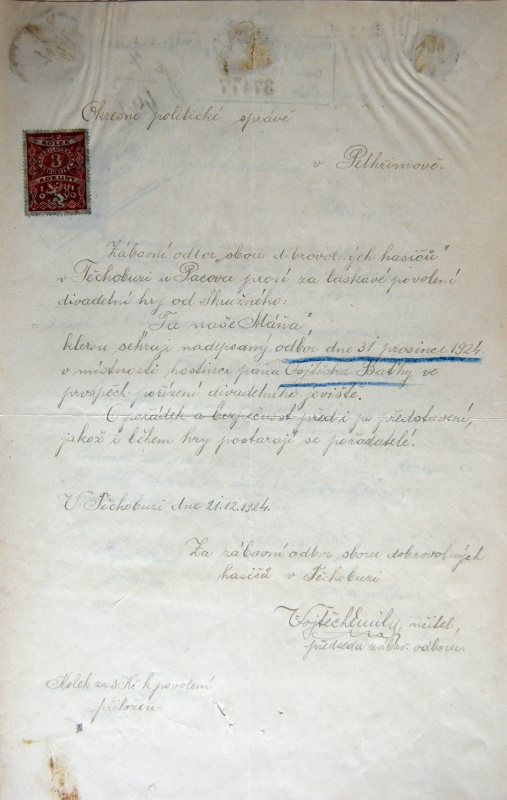 37477
Okresní politické správě
v Pelhřimově.
KOLEK
3
KORUNY
1919
Zábavní odbor „sboru dobrovolných hasičů"
v Těchobuzi u Pacova prosí za laskavé povolení
divadelní hry od Skružného:
„Ta naše Máňa",
kterou sehraje nadepsaný odbor dne 31. prosince 1924
v místnosti hostince pana Vojtěcha Bat'hy ve
prospěch pořízení divadelního jeviště.
O pořádek a bezpečnost před i po představení,
jakož i během hry postarají se pořadatelé.
V Těchobuzi dne 21.12.1924.
Za zábavní odbor sboru dobrovolných
hasičů v Těchobuzi
Vojtěch Emily, učitel,
předseda zábav. odboru.
Kolek za 3 Kč k povolení
přiložen